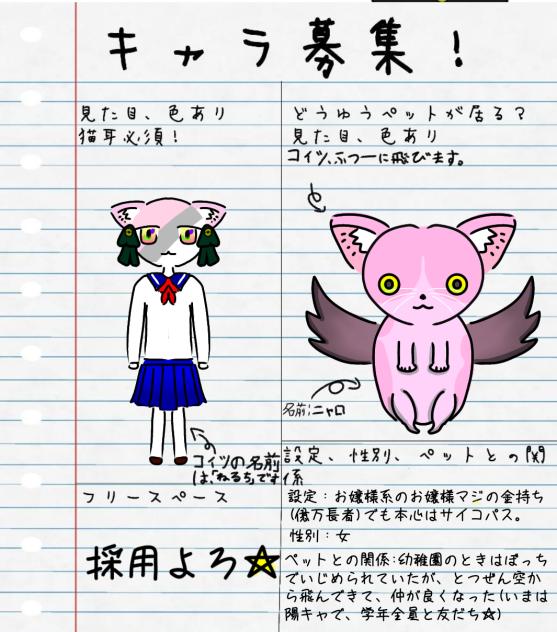 キャラ募集!
見た目、色あり
猫耳必須!
どうゆうペットが居る?
見た目、色あり
コイツ、ふつーに飛びます。
名前:ニャロ
コイツの名前
は、「ねるち」です
設定、性別、ペットとの関
係
フリースペース
採用よろ☆
設定:お嬢様系のお嬢様マジの金持ち
(億万長者)でも本心はサイコパス。
性別:女
ペットとの関係:幼稚園のときはぼっち
でいじめられていたが、とつぜん空か
ら飛んできて、仲が良くなった(いまは
陽キャで、学年全員と友だち☆)